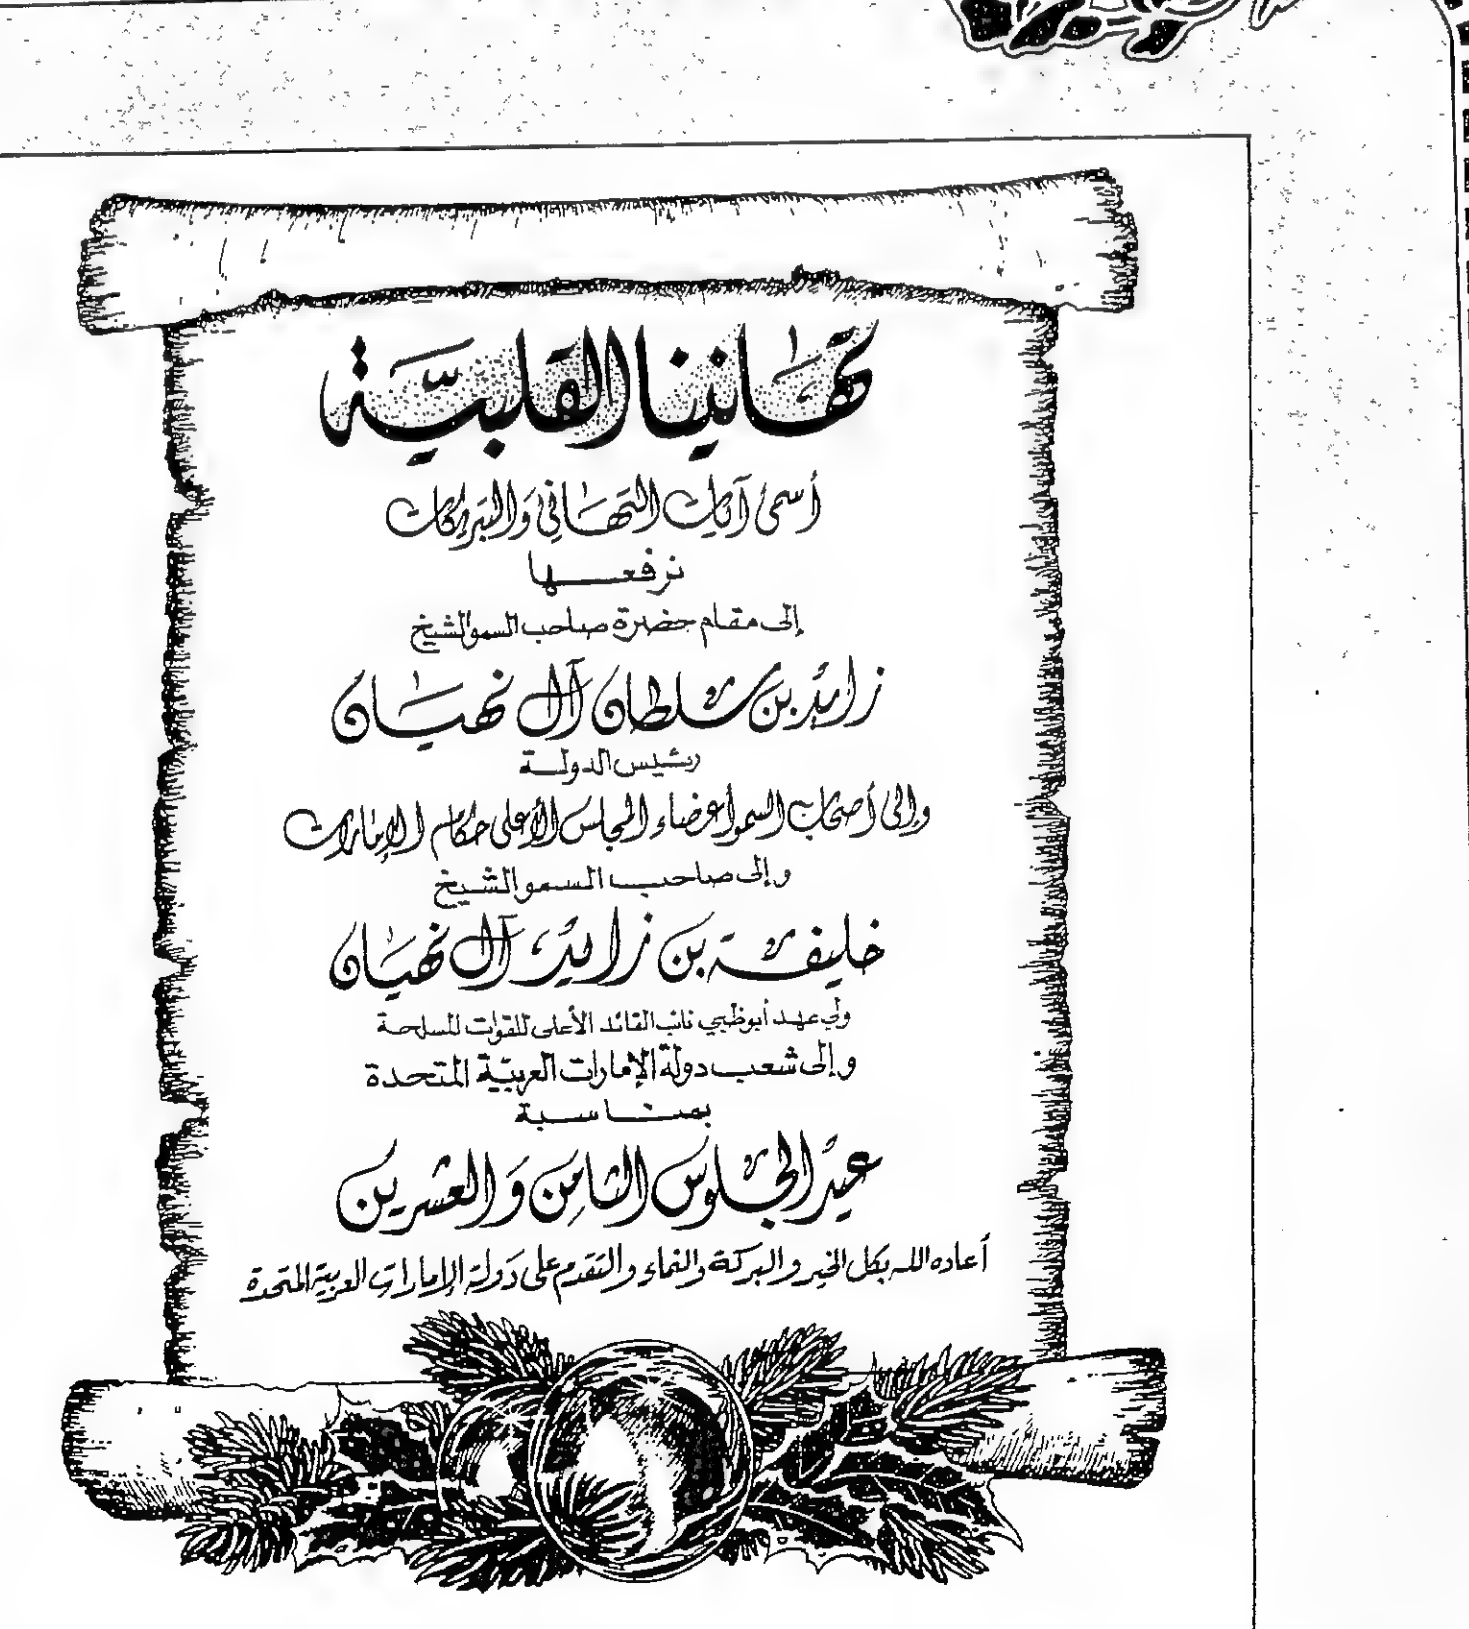 تهانينا القلبيّة
أسمى آيات التهاني والتبريكات
نرفعها
إلى مقام حضرة صاحب السمو الشيخ
زايد بن سلطان آل نهيان
رئيس الدولة
وإلى أصحاب السمو أعضاء المجلس الأعلى حكام الإمارات
وإلى صاحب السمو الشيخ
خليفة بن زايد آل نهيان
ولي عهد أبوظبي نائب القائد الأعلى للقوات المسلحة
وإلى شعب دولة الإمارات العربيّة المتحدة
بمناسبة
عيد الجلوس الثامن والعشرين
أعاده الله بكل الخير والبركة والنماء والتقدم على دولة الإمارات العربية المتحدة